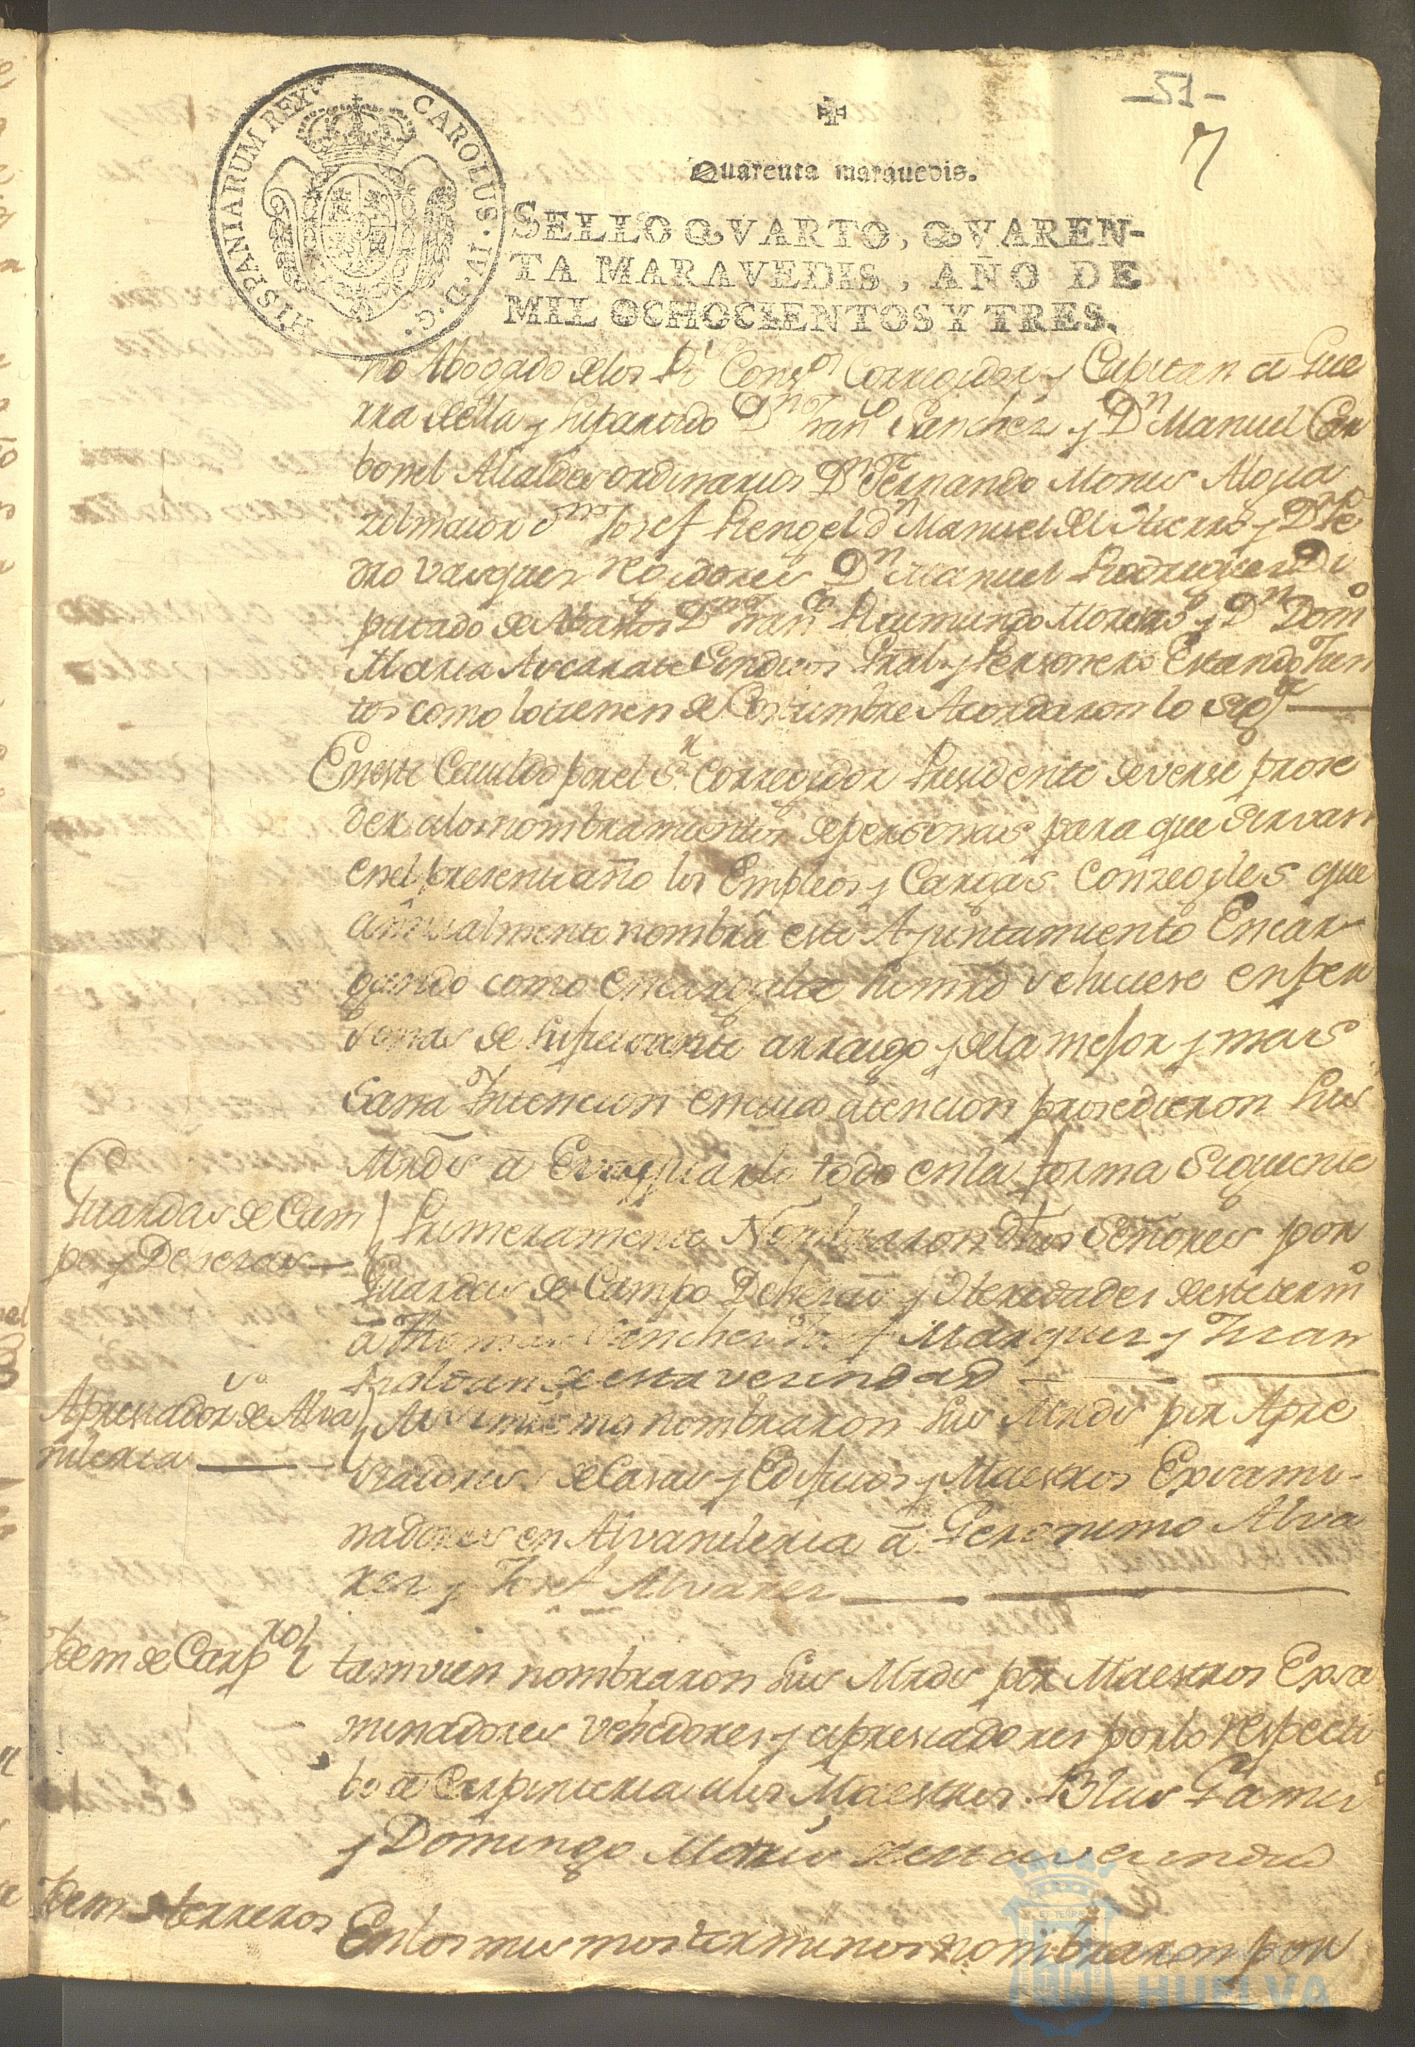 -51-
7
HISPANIARUM REX CAROLUS IV D G
Quarenta marauedis.
SELLO QVARTO, QVAREN-
TA MARAVEDIS, AÑO DE
MIL OCHOCIENTOS Y TRES.
no Abogado delos Rs Consos Corregidor y Capitan a Gue
rra della y su partido Dn Franco Sanchez y Dn Manuel Car
bonel Alcaldes ordinarios Dn Fernando Mones Algua
zil maior Dnes Josef Rengel Dn Manuel del Hierro y Dn Pe
dro Vasques Regidores Dn Manuel Rodriguez Di
putado de Abastos Dnes Franco Raimundo Moreno y Dn Domo
Maria Ascarate Sindicos Gral y Personero Estando Jun
tos como lo tienen de Costumbre Acordaron lo sigte
En este Cavildo por el Sr Corregidor Presidente deverse proce
der alos nombramientos de personas para que sirvan
en el presente año los Empleos y Cargas Conzegiles que
annualmente nombra este Ayuntamiento Encar
gando como encargaba su mrd se hiciese en per
sonas de suficiente arraigo y dela mejor y mas
sana Intencion en cuia atencion prosedieron sus
Mrds a Evaquarlo todo en la forma siguiente
Guardas de Cam
po y Desezas
Primeramente Nombraron dhos Señores por
Guardas de Campo Dehezas y Heredades de este termo
a Thomas Sanchez Josef Marquez y Juan
Roldan de esta vecindad
Apreciadors de Alva
nileria
Asi mismo nombraron sus Mrds por Apre
ciadores de Casas y Edificios y Maestros Exsami-
nadores en Alvanileria a Geronimo Alva
rez y Josef Alvarez
Idem de Carpro
tamvien nombraron sus Mrds por Maestros Exsa
minadores vehedores y apreciadores por lo respecti
bo a Carpinteria alos Maestros Blas Gamis
y Domingo Mones de esta vecindad
Idem Herreros
En los mismos terminos nombraron por
HUELVA